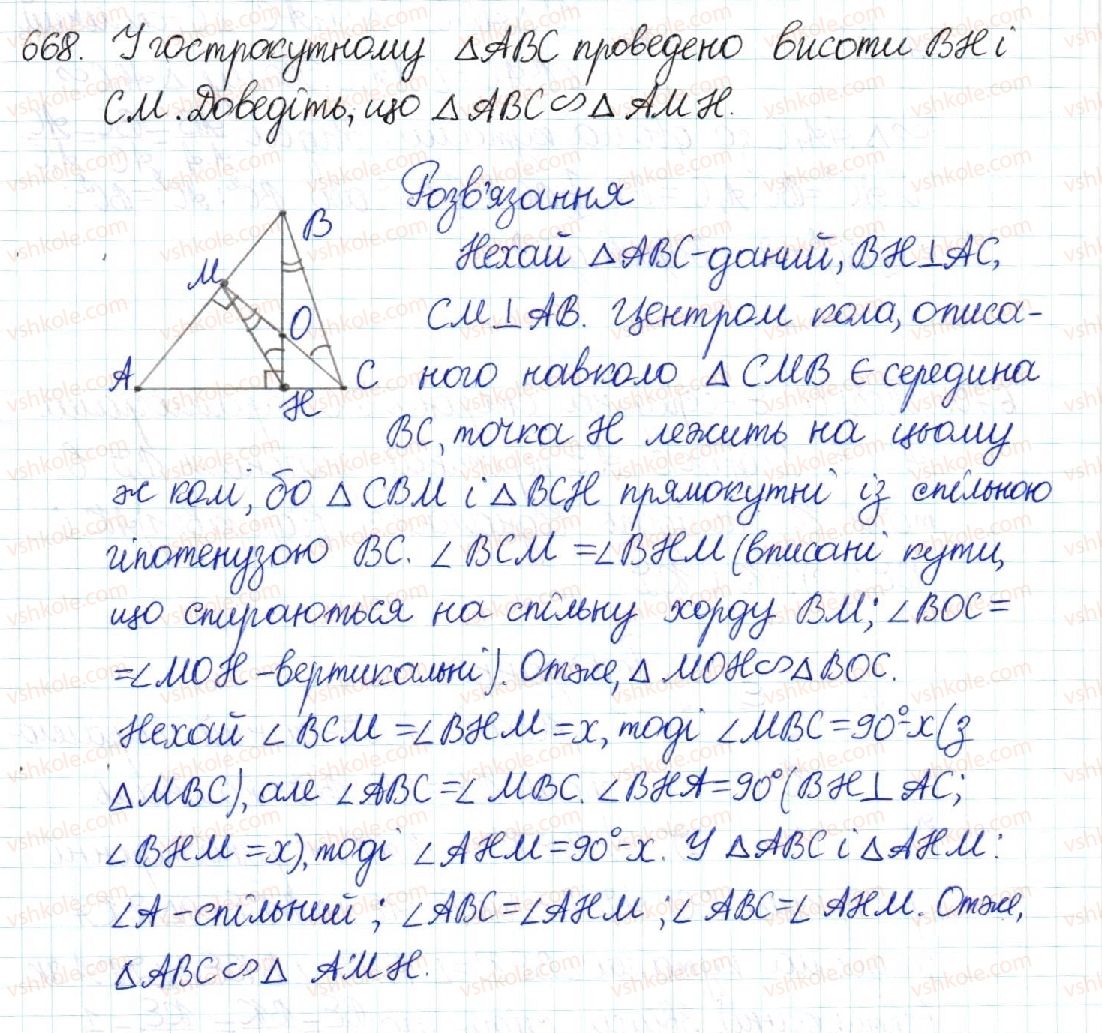 668. У гострокутному △ABC проведено висоти BH і
CM. Доведіть, що △ABC ∽ △AMH.
Розв'язання
Нехай △ABC-даний, BH⊥AC,
CM⊥AB. Центром кола, описа-
ного навколо △CMB є середина
BC, точка H лежить на цьому
ж колі, бо △CBM і △BCH прямокутні із спільною
гіпотенузою BC. ∠BCM = ∠BHM (вписані кути,
що спираються на спільну хорду BM; ∠BOC =
=∠MOH - вертикальні). Отже, △MOH ∽ △BOC.
Нехай ∠BCM = ∠BHM = x, тоді ∠MBC = 90°-x (з
△MBC), але ∠ABC = ∠MBC. ∠BHA = 90° (BH⊥AC;
∠BHM = x), тоді ∠AHM = 90°-x. У △ABC і △AHM:
∠A - спільний; ∠ABC = ∠AHM; ∠ABC = ∠AHM. Отже,
△ABC ∽ △AMH.
B
M
O
A
C
H
vshkole.com